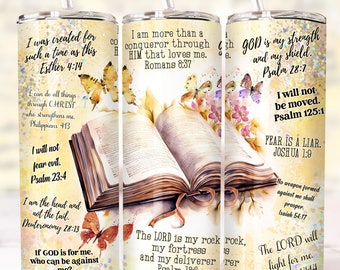 I was created for
such a time as this
Esther 4:14
I can do all things
through CHRIST
who strengthens me.
Philippians 4:13
I will not
fear evil.
Psalm 23:4
I am the head and
not the tail.
Deuteronomy 28:13
If GOD is for me,
who can be against
me?
I am more than a
conqueror through
HIM that loves me.
Romans 8:37
The LORD is my rock,
my fortress
and my deliverer
rock,
fortress
deliverer
GOD is my strength
and my shield.
Psalm 28:7
I will not
be moved.
Psalm 125:1
FEAR IS A LIAR.
JOSHUA 1:9
No weapon formed
against me shall
prosper.
Isaiah 54:17
The LORD will
fight for me.